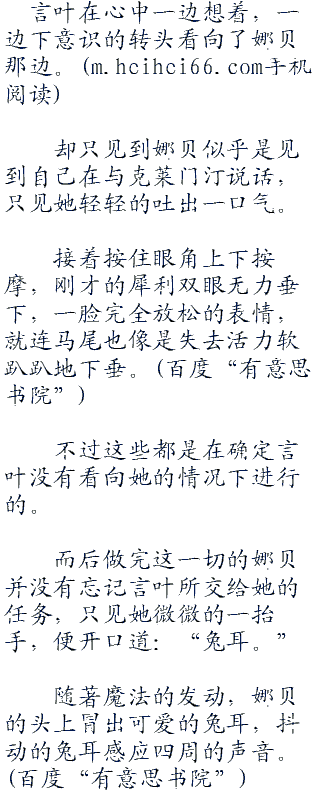 言叶在心中一边想着，一
边下意识的转头看向了娜贝
那边。(m.hcihci66.com手机
阅读)
却只见到娜贝似乎是见
到自己在与克莱门汀说话，
只见她轻轻的吐出一口气。
接着按住眼角上下按
摩，刚才的犀利双眼无力垂
下，一脸完全放松的表情，
就连马尾也像是失去活力软
趴趴地下垂。(百度“有意思
书院”)
不过这些都是在确定言
叶没有看向她的情况下进行
的。
而后做完这一切的娜贝
并没有忘记言叶所交给她的
任务，只见她微微的一抬
手，便开口道：“兔耳。”
随著魔法的发动，娜贝
的头上冒出可爱的兔耳，抖
动的兔耳感应四周的声音。
(百度“有意思书院”)